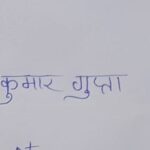 कुमार गुप्ता